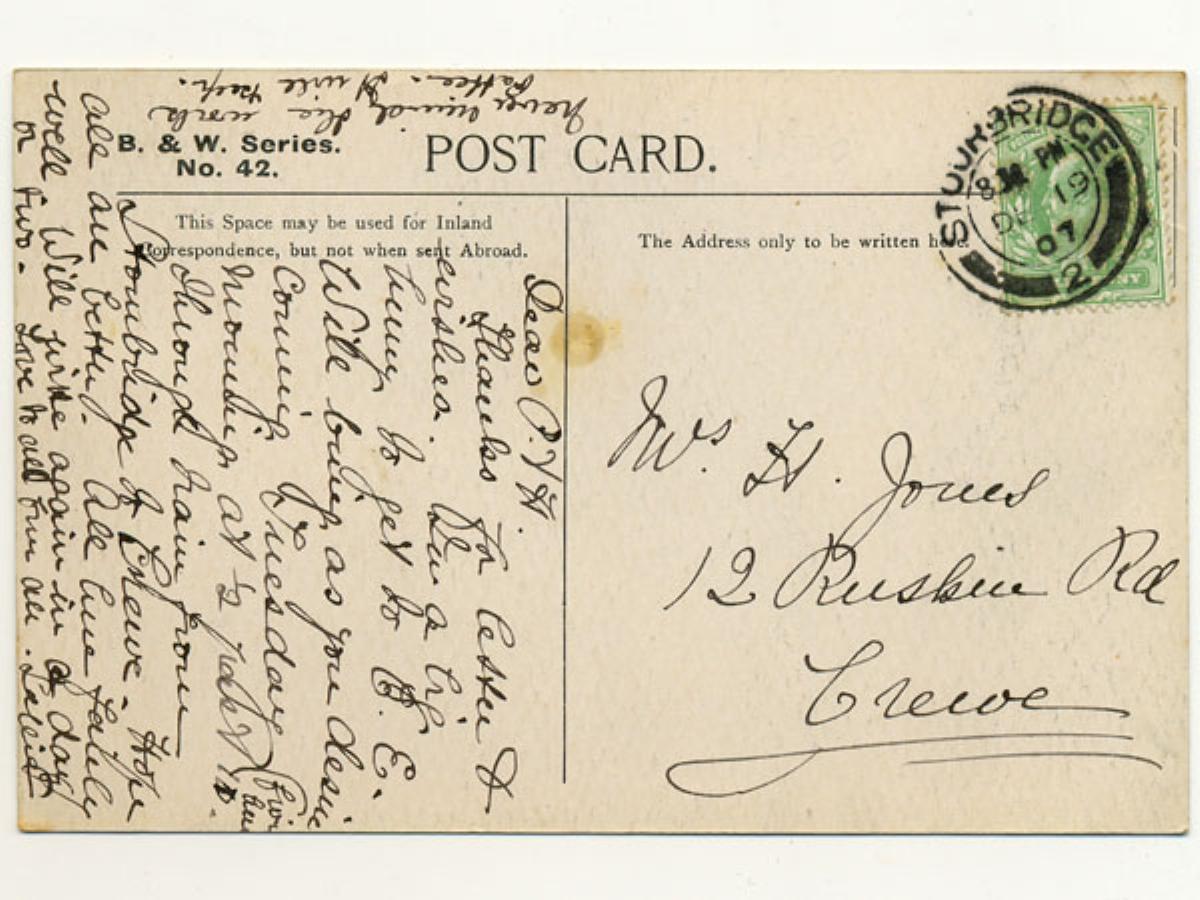 B. & W. Series.
No. 42.
POST CARD.
This Space may be used for Inland
Correspondence, but not when sent Abroad.
The Address only to be written here.
STOURBRIDGE
8 PM
DE 19
07
2
Mrs. H. Jones
12 Ruskin Rd
Crewe
Dear P.V.H.
Thanks for letter &
wishes. In a
hurry to get to B. E.
Will bring as you desire
Coming Tuesday
morning at 12
Through train from
Stourbridge to Crewe. Hope
all are better. All here fairly
well. Will write again in a day
or two. Love to all from all.
never mind the work
It will keep.